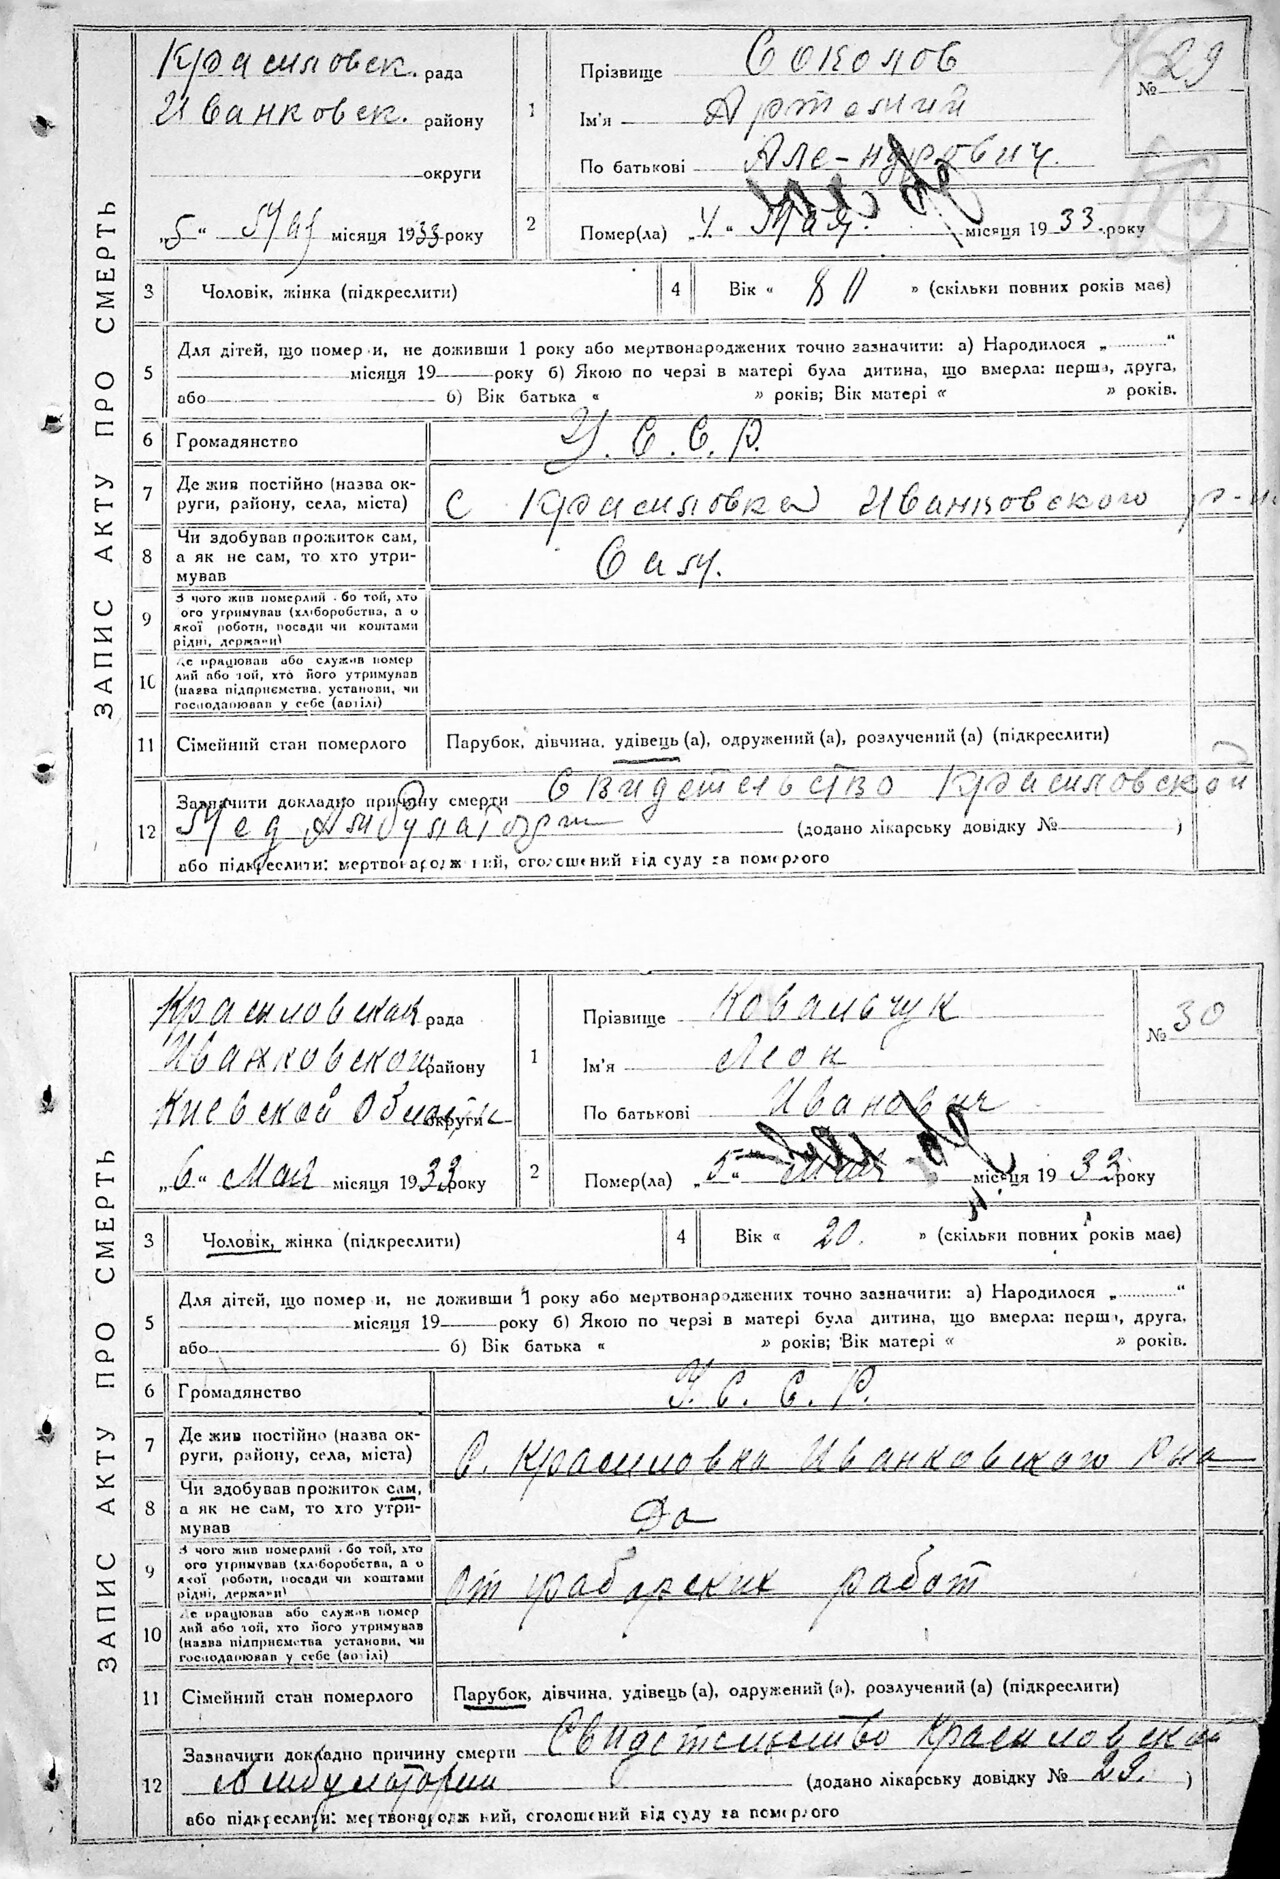 ЗАПИС АКТУ ПРО СМЕРТЬ
Красиловск. рада
Иванковск. району
округи
„5“ Мая місяця 1933 року
1
Прізвище Соколов
Ім'я Артемий
По батькові Але-ндрович
№ 29
2
Помер(ла) „4.“ Мая. місяця 1933. року
3 Чоловік, жінка (підкреслити)
4 Вік « 80 » (скільки повних років має)
5
Для дітей, що помер и, не доживши 1 року або мертвонароджених точно зазначити: а) Народилося „ “
місяця 19 року б) Якою по черзі в матері була дитина, що вмерла: перша, друга,
або б) Вік батька « » років; Вік матері « » років.
6 Громадянство У. С. С. Р.
7
Де жив постійно (назва ок-
руги, району, села, міста) С Красиловка Иванковского р-на
8
Чи здобував прожиток сам,
а як не сам, то хто утри- Сам.
мував
9
З чого жив померлий бо той, хто
ого утримував (хліборобства, а о
якої роботи, посади чи коштами
рідні, держави)
10
Де працював або служив помер
лий або той, хто його утримував
(назва підприємства, установи, чи
господарював у себе (артілі)
11 Сімейний стан померлого Парубок, дівчина, удівець (а), одружений (а), розлучений (а) (підкреслити)
12
Зазначити докладно причину смерти Свидетельство Красиловской
Мед Амбулатории (додано лікарську довідку № )
або підкреслити: мертвонародж ний, оголошений від суду за померлого
ЗАПИС АКТУ ПРО СМЕРТЬ
Красиловская рада
Иванковского району
Киевской Области округи
„6“ Мая місяця 1933 року
1
Прізвище Ковальчук
Ім'я Леон
По батькові Иванович
№ 30
2
Помер(ла) „5“ Мая місяця 1933 року
3 Чоловік, жінка (підкреслити)
4 Вік « 20. » (скільки повних років має)
5
Для дітей, що помер и, не доживши 1 року або мертвонароджених точно зазначити: а) Народилося „ “
місяця 19 року б) Якою по черзі в матері була дитина, що вмерла: перша, друга,
або б) Вік батька « » років; Вік матері « » років.
6 Громадянство У. С. С. Р.
7
Де жив постійно (назва ок-
руги, району, села, міста) С. Красиловка Иванковского Р-на
8
Чи здобував прожиток сам,
а як не сам, то хто утри- Да
мував
9
З чого жив померлий бо той, хто
ого утримував (хліборобства, а о
якої роботи, посади чи коштами
рідні, держави) от работ
10
Де працював або служив помер
лий або той, хто його утримував
(назва підприємства установи, чи
господарював у себе (артілі)
11 Сімейний стан померлого Парубок, дівчина, удівець (а), одружений (а), розлучений (а) (підкреслити)
12
Зазначити докладно причину смерти Свидетельство Красиловской
Амбулатории (додано лікарську довідку № 29. )
або підкреслити: мертвонародж ний, оголошений від суду за померлого